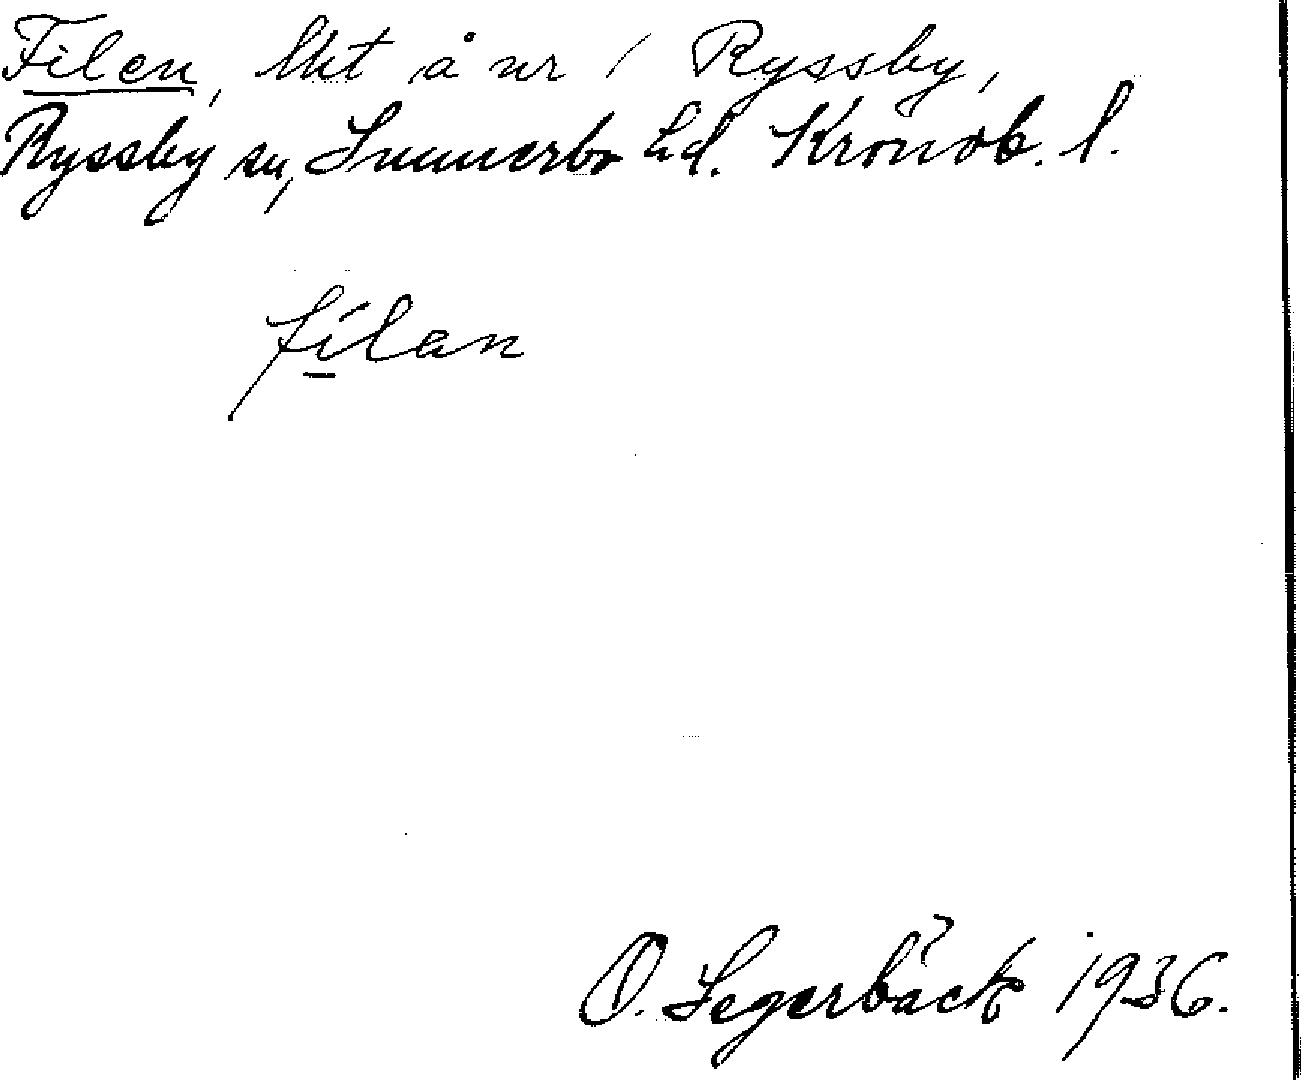 Filen, lkt å nr 1 Ryssby,
Ryssby sn, Sunnerbo hd. Kronob. l.
fílan
O. Segerbäck 1936.